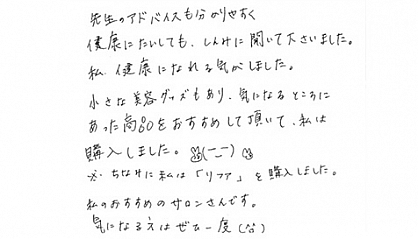 先生のアドバイスも分かりやすく
健康にたいしても、しんみに聞いて下さいました。
私、健康になれる気がしました。
小さな美容グッズもあり、気になるところに
あった商品をおすすめして頂いて、私は
購入しました。(^-^)
※ ちなみに私は「リファ」を購入しました。
私のおすすめのサロンさんです。
気になる方はぜひ一度(^^)